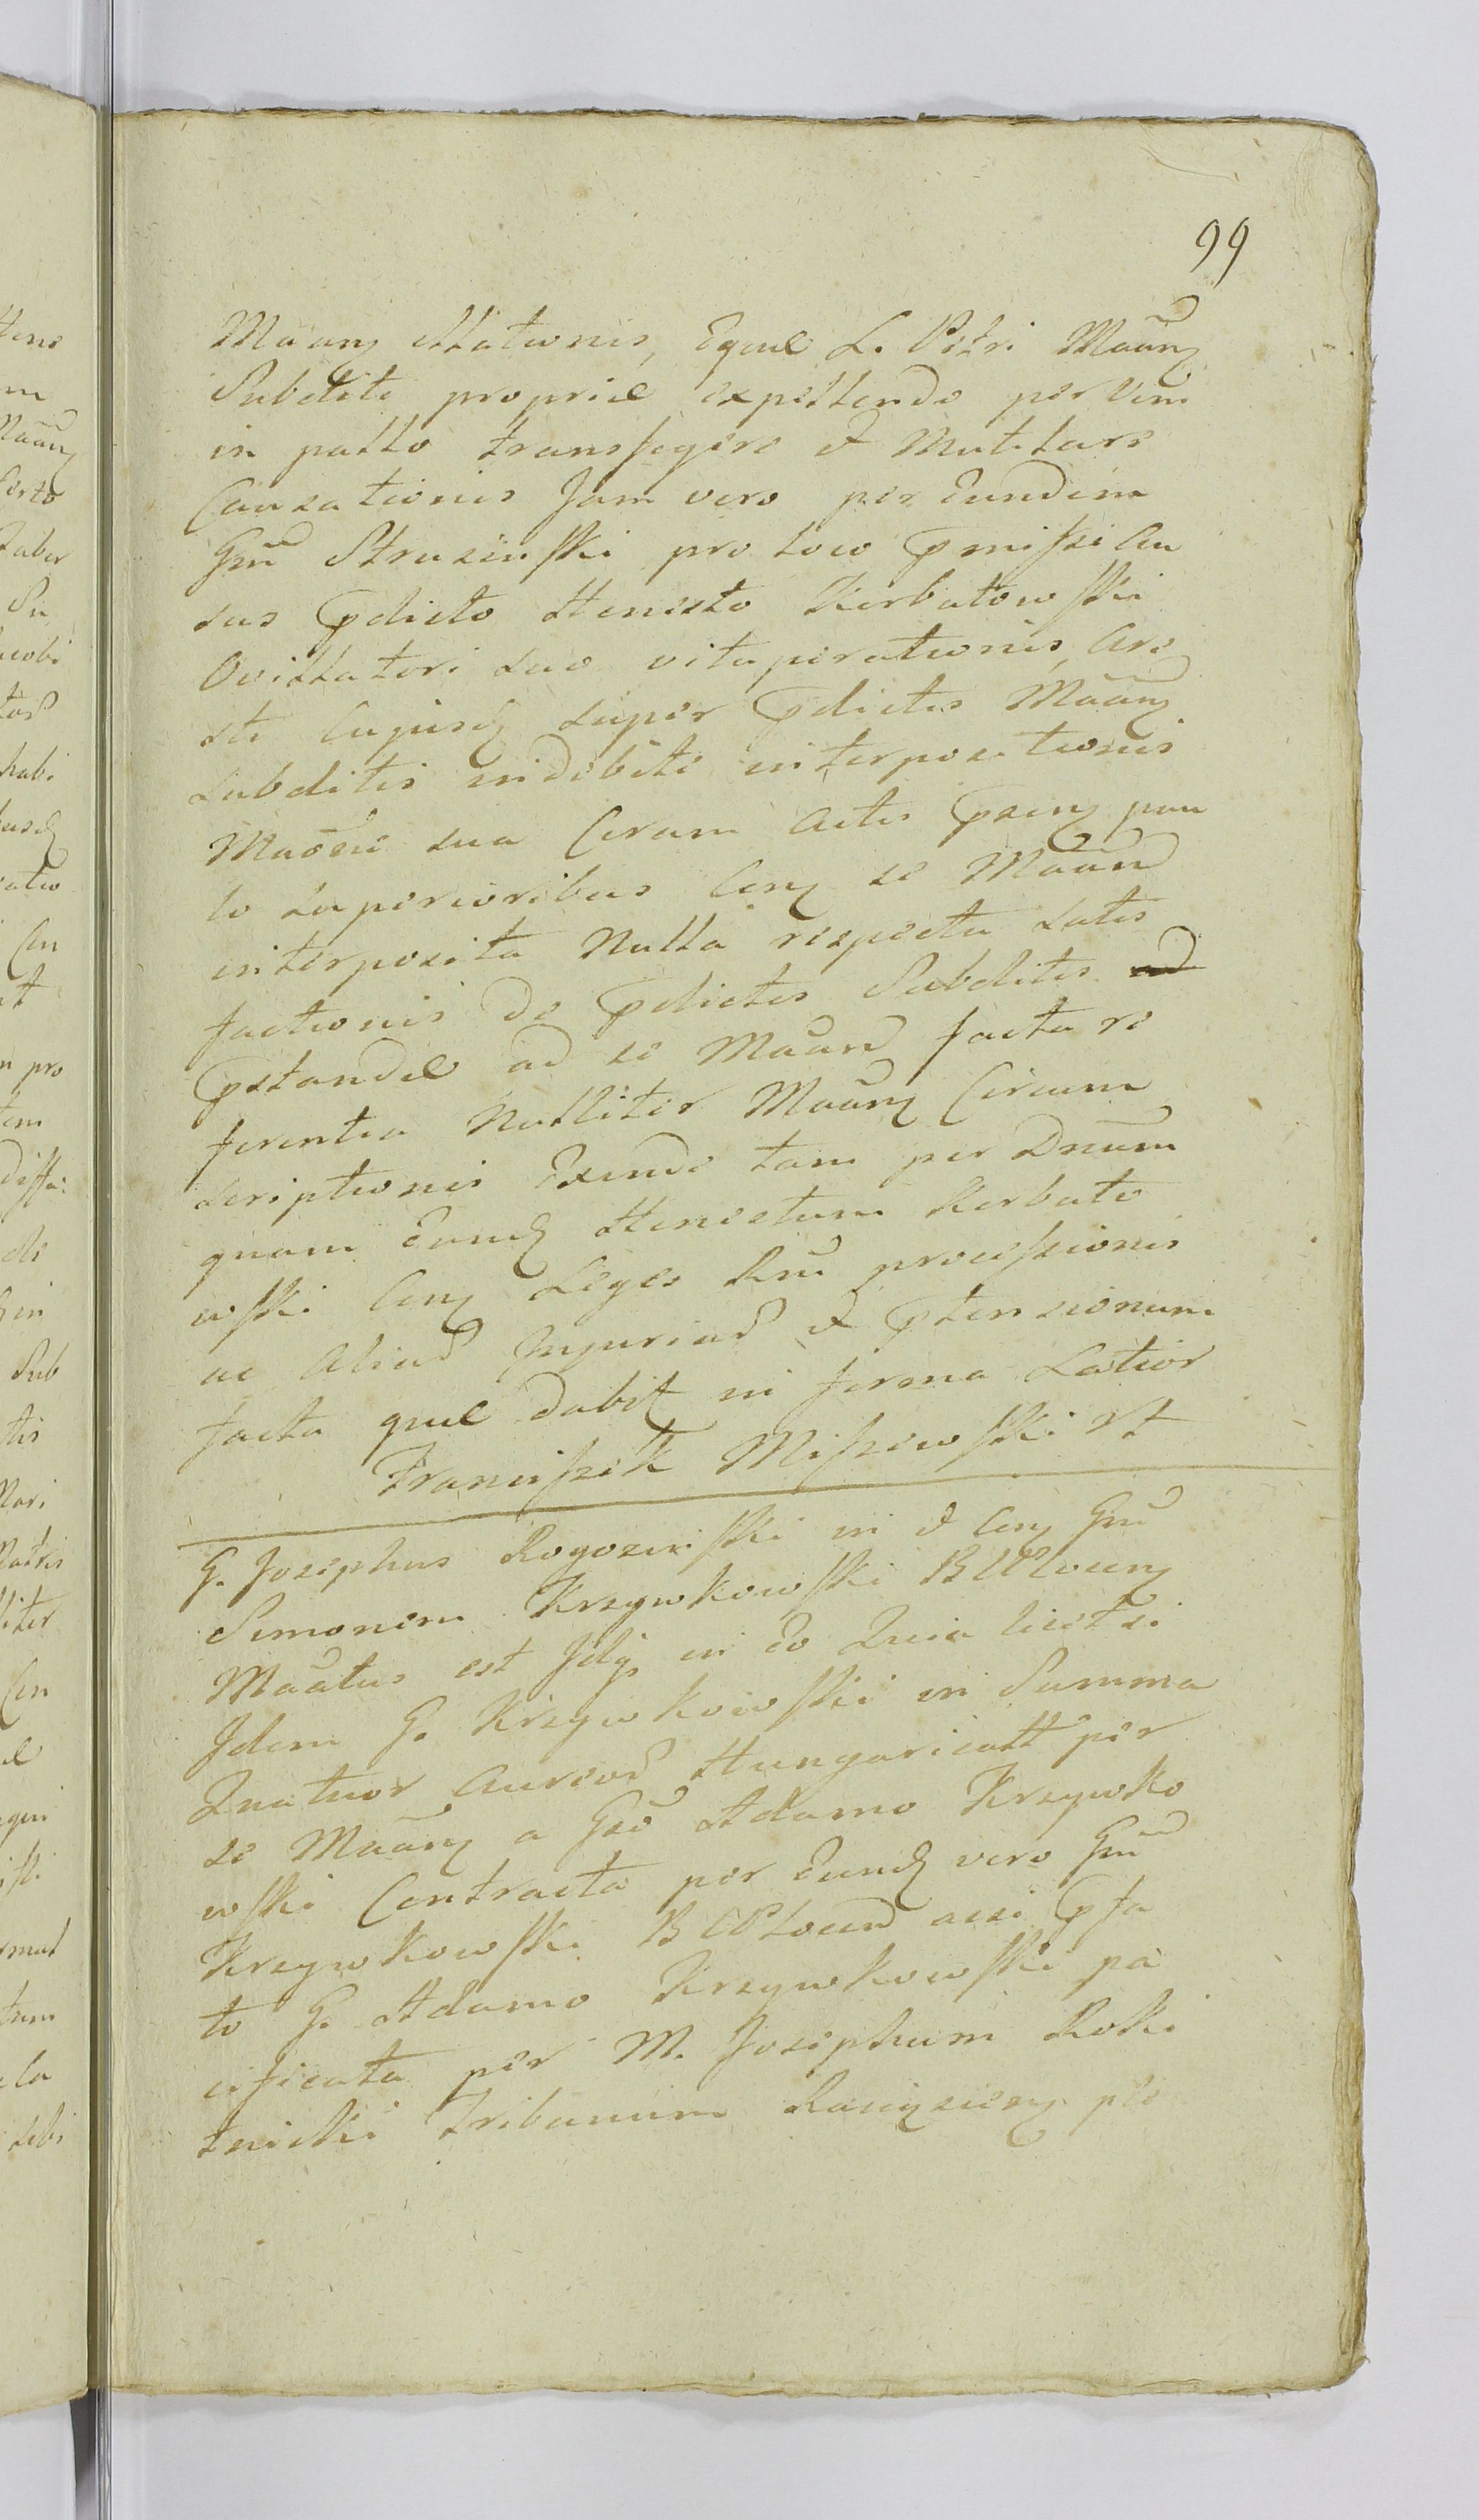 99
Maan̄ Illationis, Eqvae L. Petri Maan̄
Subditi propriae expellendo per Vim
in pallo transfigere et Mutilare
Causationis Jam vero per Eundem
Gnū Struzinski pro loco pmissi Cu
sus pdicto Honesto Kerbatowski
Ovillatori suo vituperationis, Are
sti Cujusq super pdictis Maan̄
subditis indebite interpositionis
Maoēē sua Coram Actis psen̄ pau
lo superioribus Con̄ se Maan̄d
interposita Nulla respectu satis
factionis de pdictis Subditis
pstandae ad se Maan̄d facta re
ferentia Nulliter Maan̄ Circum
scriptionis Exinde tam per Dnum
quam Eund Honestum Kerbato
wski Con̄ Leges Rnī processionis
ac Aliaū Injuriaū et ptensionum
facta quae dabit in forma Latior
Franciszek Miszewski
G. Josephus Rogozinski in et Con̄ Gnū
Simonem Krzywkowski BCPlocen̄
Maātus est Idq in eo Quia licet si
Idem G. Krzywkowski in Summa
Quatuor Aureoū Hungaricall per
se Maan̄ a Gsō Adamo Krzywko
wski Contracta per Eund vero Gnū
Krzywkowski BCPlocen̄ acsi pfa
to G. Adamo Krzywkowski pa
cificata per M. Josephum Roki
tnicki Tribunum Raciązen̄